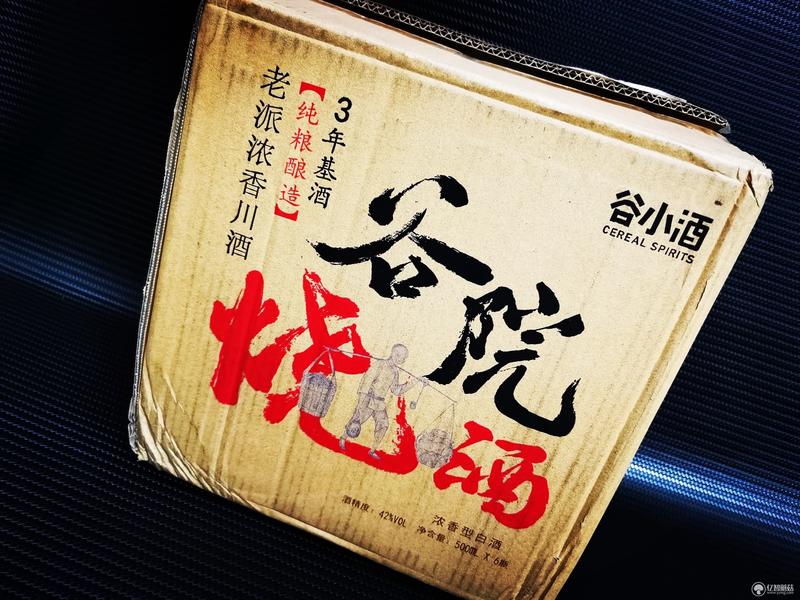 3年基酒
【纯粮酿造】
老派浓香川酒
谷小酒
CEREAL SPIRITS
谷院
烧酒
浓香型白酒
酒精度：42%VOL 净含量：500ML X 6瓶
亿智蘑菇